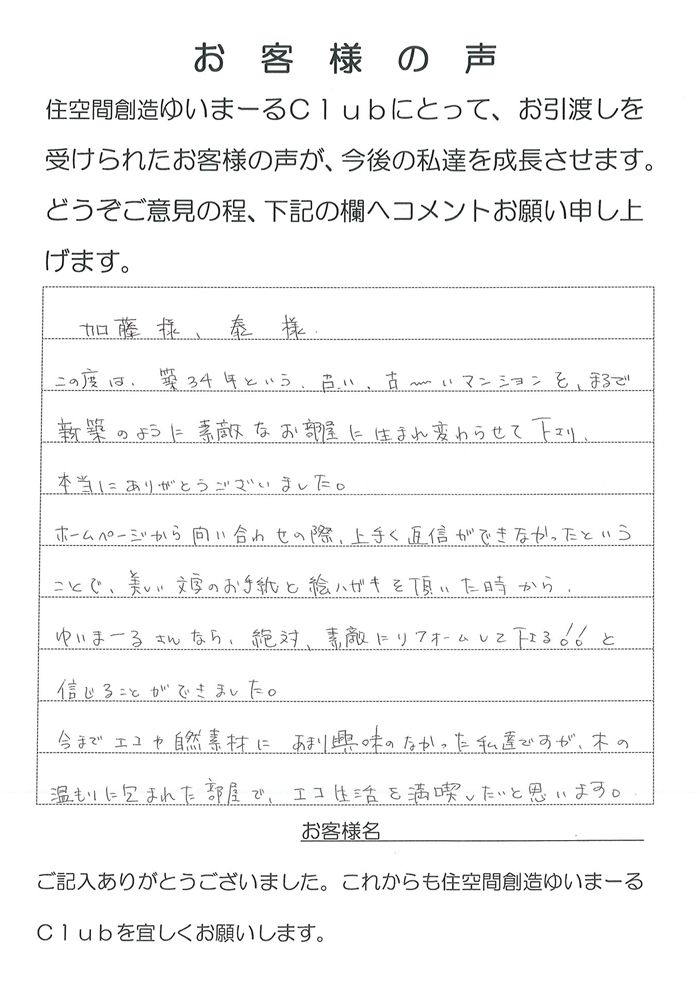 お客様の声
住空間創造ゆいまーるＣｌｕｂにとって、お引渡しを
受けられたお客様の声が、今後の私達を成長させます。
どうぞご意見の程、下記の欄へコメントお願い申し上
げます。
加藤様、秦様.
この度は、築34年という、古い、古〜いマンションを、まるで
新築のように素敵なお部屋に生まれ変わらせて下さり、
本当にありがとうございました。
ホームページから問い合わせの際、上手く返信ができなかったという
ことで、美しい文字のお手紙と絵ハガキを頂いた時から、
ゆいまーるさんなら、絶対、素敵にリフォームして下さる!!と
信じることができました。
今までエコや自然素材にあまり興味のなかった私達ですが、木の
温もりに包まれた部屋で、エコ生活を満喫したいと思います。
お客様名
ご記入ありがとうございました。これからも住空間創造ゆいまーる
Ｃｌｕｂを宜しくお願いします。